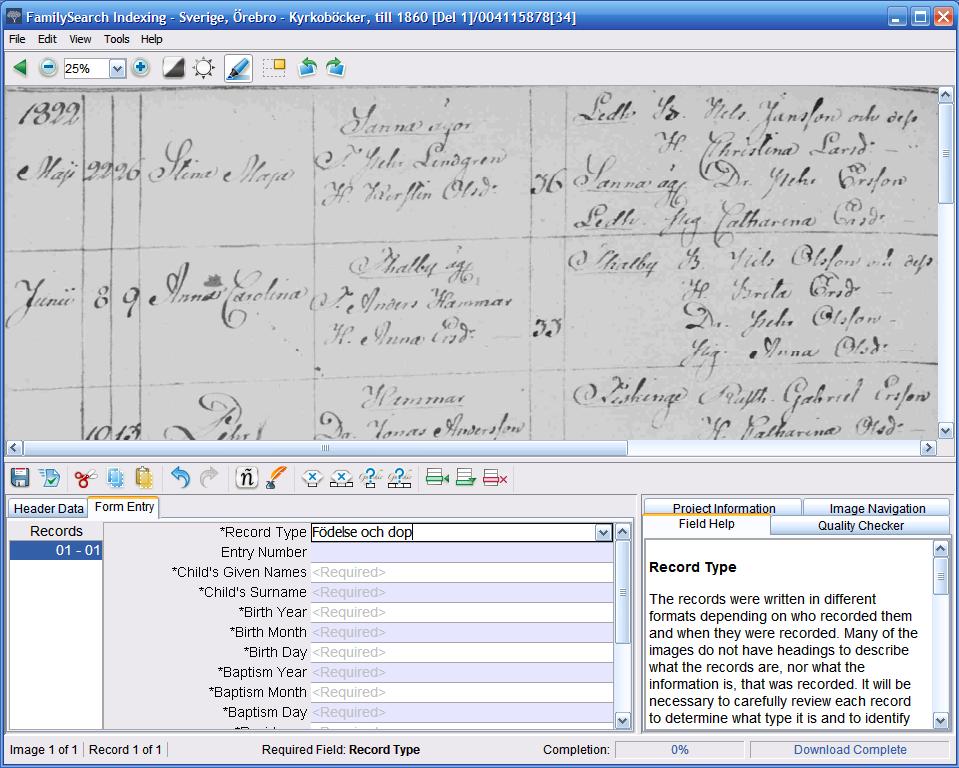 FamilySearch Indexing - Sverige, Örebro - Kyrkoböcker, till 1860 [Del 1]/004115878[34]
File Edit View Tools Help
25%
1822
Maji 22 26 Stina Maja
Sanna ägor
F. Pehr Lindgren
H. Kerstin Olsdr
36
Ledtr B. Nils Jansson och dess
H. Christina Larsd
Sanna äg Dr. Pehr Ersson
Ledtr Pig Catharina Ersd
Junii 8 9 Anna Carolina
Thalby äg
F. Anders Hammar
H. Anna Ersd
33
Thalby B. Nils Olsson och dess
H. Brita Ersd
Dr. Pehr Olsson
Pig. Anna Olsd
10 13 Pehr
Hemmar
Da. Jonas Andersson
Gabriel Ersson
H. Catharina Olsd
Header Data Form Entry
Records
01 - 01
*Record Type Födelse och dop
Entry Number
*Child's Given Names <Required>
*Child's Surname <Required>
*Birth Year <Required>
*Birth Month <Required>
*Birth Day <Required>
*Baptism Year <Required>
*Baptism Month <Required>
*Baptism Day <Required>
Project Information Image Navigation
Field Help Quality Checker
Record Type
The records were written in different
formats depending on who recorded them
and when they were recorded. Many of the
images do not have headings to describe
what the records are, nor what the
information is, that was recorded. It will be
necessary to carefully review each record
to determine what type it is and to identify
Image 1 of 1 Record 1 of 1 Required Field: Record Type Completion: 0% Download Complete